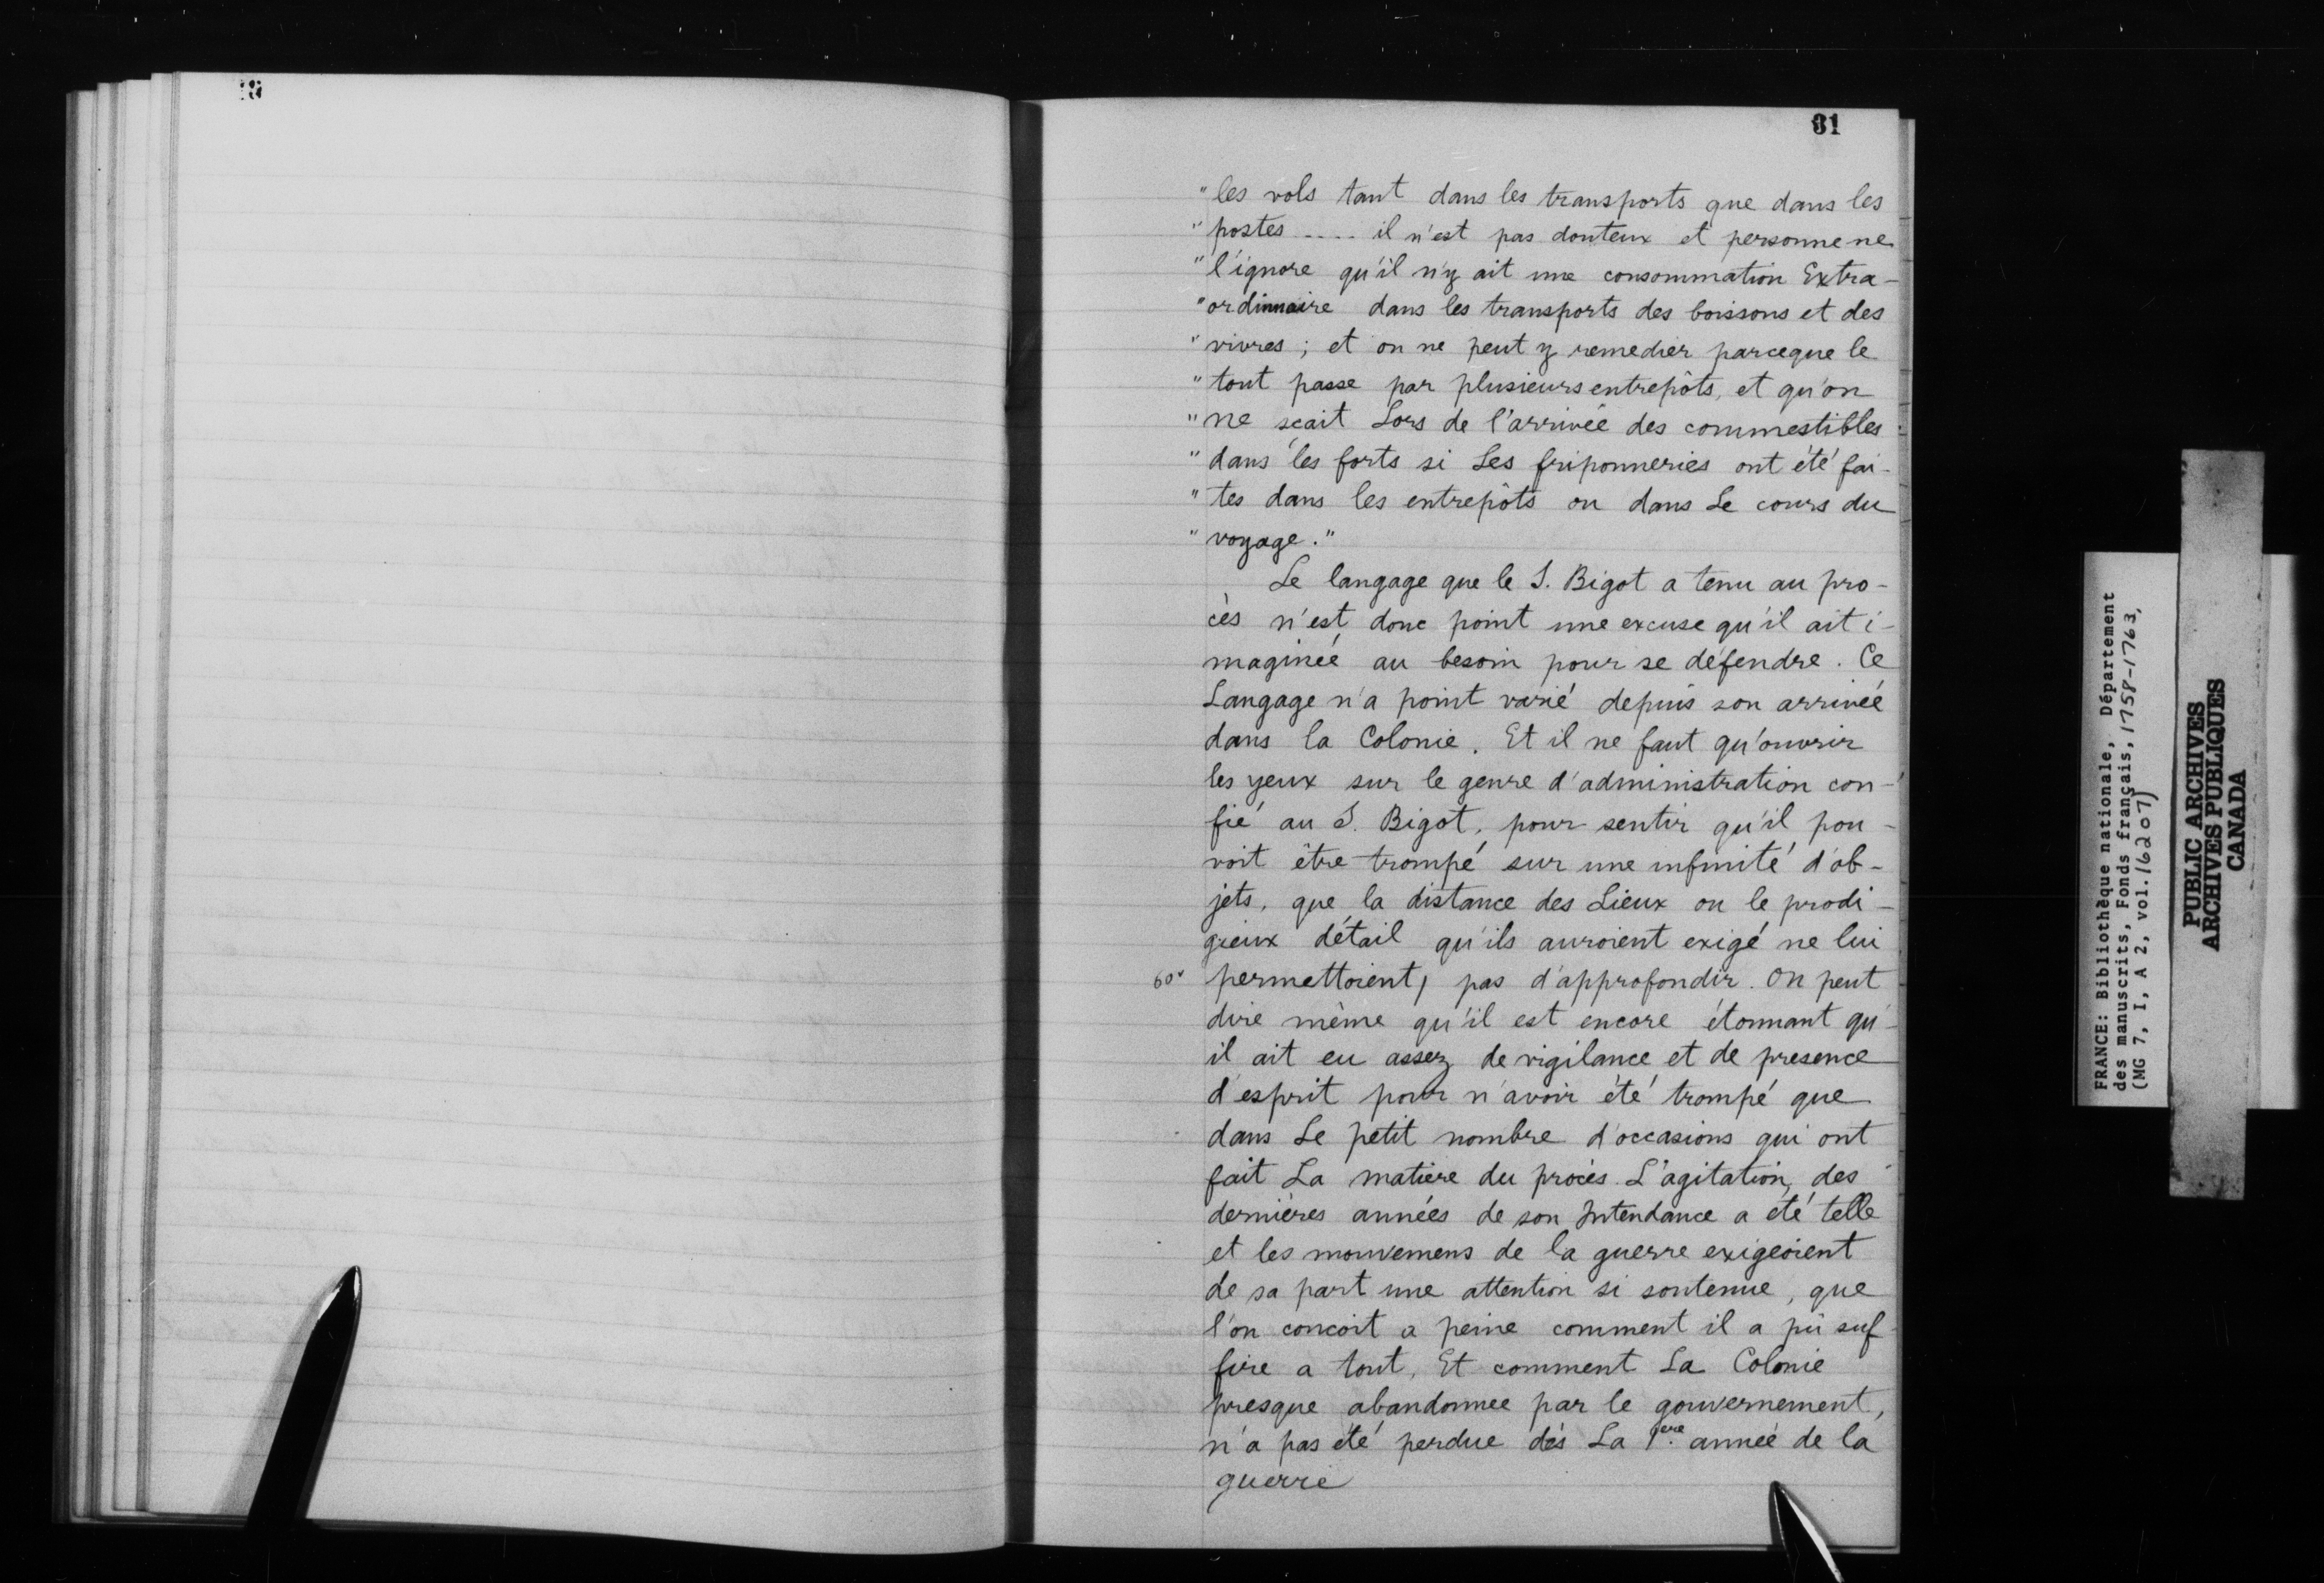 81
" les vols tant dans les transports que dans les
" postes .... il n'est pas douteux et personne ne
" l'ignore qu'il n'y ait une consommation Extra-
" ordinnaire dans les transports des boissons et des
" vivres ; et on ne peut y remedier parceque le
" tout passe par plusieurs entrepôts, et qu'on
" ne sçait Lors de l'arrivée des commestibles
" dans les forts si Les friponneries ont été fai-
" tes dans les entrepôts ou dans Le cours du
" voyage."
Le langage que le S. Bigot a tenu au pro-
cès n'est donc point une excuse qu'il ait i-
maginée au besoin pour se défendre. Ce
Langage n'a point varié depuis son arrivée
dans la Colonie. Et il ne faut qu'ouvrir
les yeux sur le genre d'administration con-
fié au S. Bigot, pour sentir qu'il pou-
voit être trompé sur une infinité d'ob-
jets, que la distance des Lieux ou le prodi-
gieux détail qu'ils auroient exigé ne lui
60v permettoient, pas d'approfondir. On peut
dire même qu'il est encore étonnant qu'-
il ait eu assez de vigilance et de presence
d'esprit pour n'avoir été trompé que
dans Le petit nombre d'occasions qui ont
fait La matiere du procès. L'agitation, des
dernières années de son Intendance a été telle
et les mouvemens de la guerre exigeoient
de sa part une attention si soutenue, que
l'on concoit a peine comment il a pû suf-
fire a tout, Et comment La Colonie
presque abandonnee par le gouvernement,
n'a pas été perdue dès La 1ere année de la
guerre
FRANCE: Bibliothèque nationale, Département
des manuscrits, Fonds français, 1758-1763,
(MG 7, I, A 2, vol. 16207)
PUBLIC ARCHIVES
ARCHIVES PUBLIQUES
CANADA